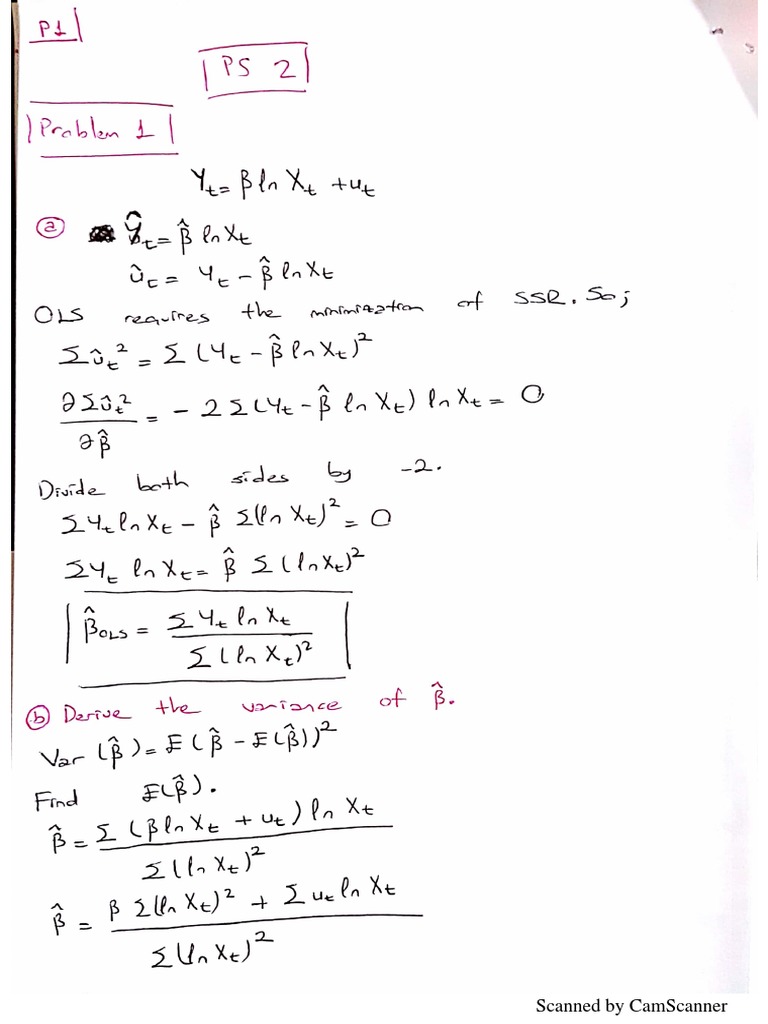 P1
PS 2
Problem 1
Yₜ = β ln Xₜ + uₜ
(a) Ŷₜ = β̂ ln Xₜ
ûₜ = Yₜ - β̂ ln Xₜ
OLS requires the minimization of SSR. So;
Σûₜ² = Σ(Yₜ - β̂ ln Xₜ)²
∂Σûₜ²/∂β̂ = -2Σ(Yₜ - β̂ ln Xₜ) ln Xₜ = 0
Divide both sides by -2.
ΣYₜ ln Xₜ - β̂ Σ(ln Xₜ)² = 0
ΣYₜ ln Xₜ = β̂ Σ(ln Xₜ)²
β̂OLS = ΣYₜ ln Xₜ / Σ(ln Xₜ)²
(b) Derive the variance of β̂.
Var(β̂) = E(β̂ - E(β̂))²
Find E(β̂).
β̂ = Σ(β ln Xₜ + uₜ) ln Xₜ / Σ(ln Xₜ)²
β̂ = β Σ(ln Xₜ)² + Σuₜ ln Xₜ / Σ(ln Xₜ)²
Scanned by CamScanner